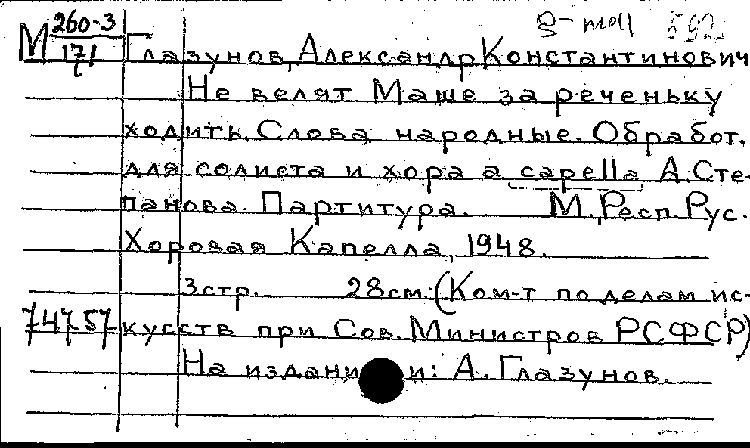 М 260-3 g-moll
171 Глазунов, Александр Константинович
Не велят Маше за реченьку
ходить. Слова народные. Обработ.
для солиста и хора a capella А. Сте-
панова. Партитура. М., Респ. Рус.
Хоровая Капелла, 1948.
3стр. 28см. (Ком-т по делам ис-
74757 кусств при Сов. Министров РСФСР)
На издани и: А. Глазунов.